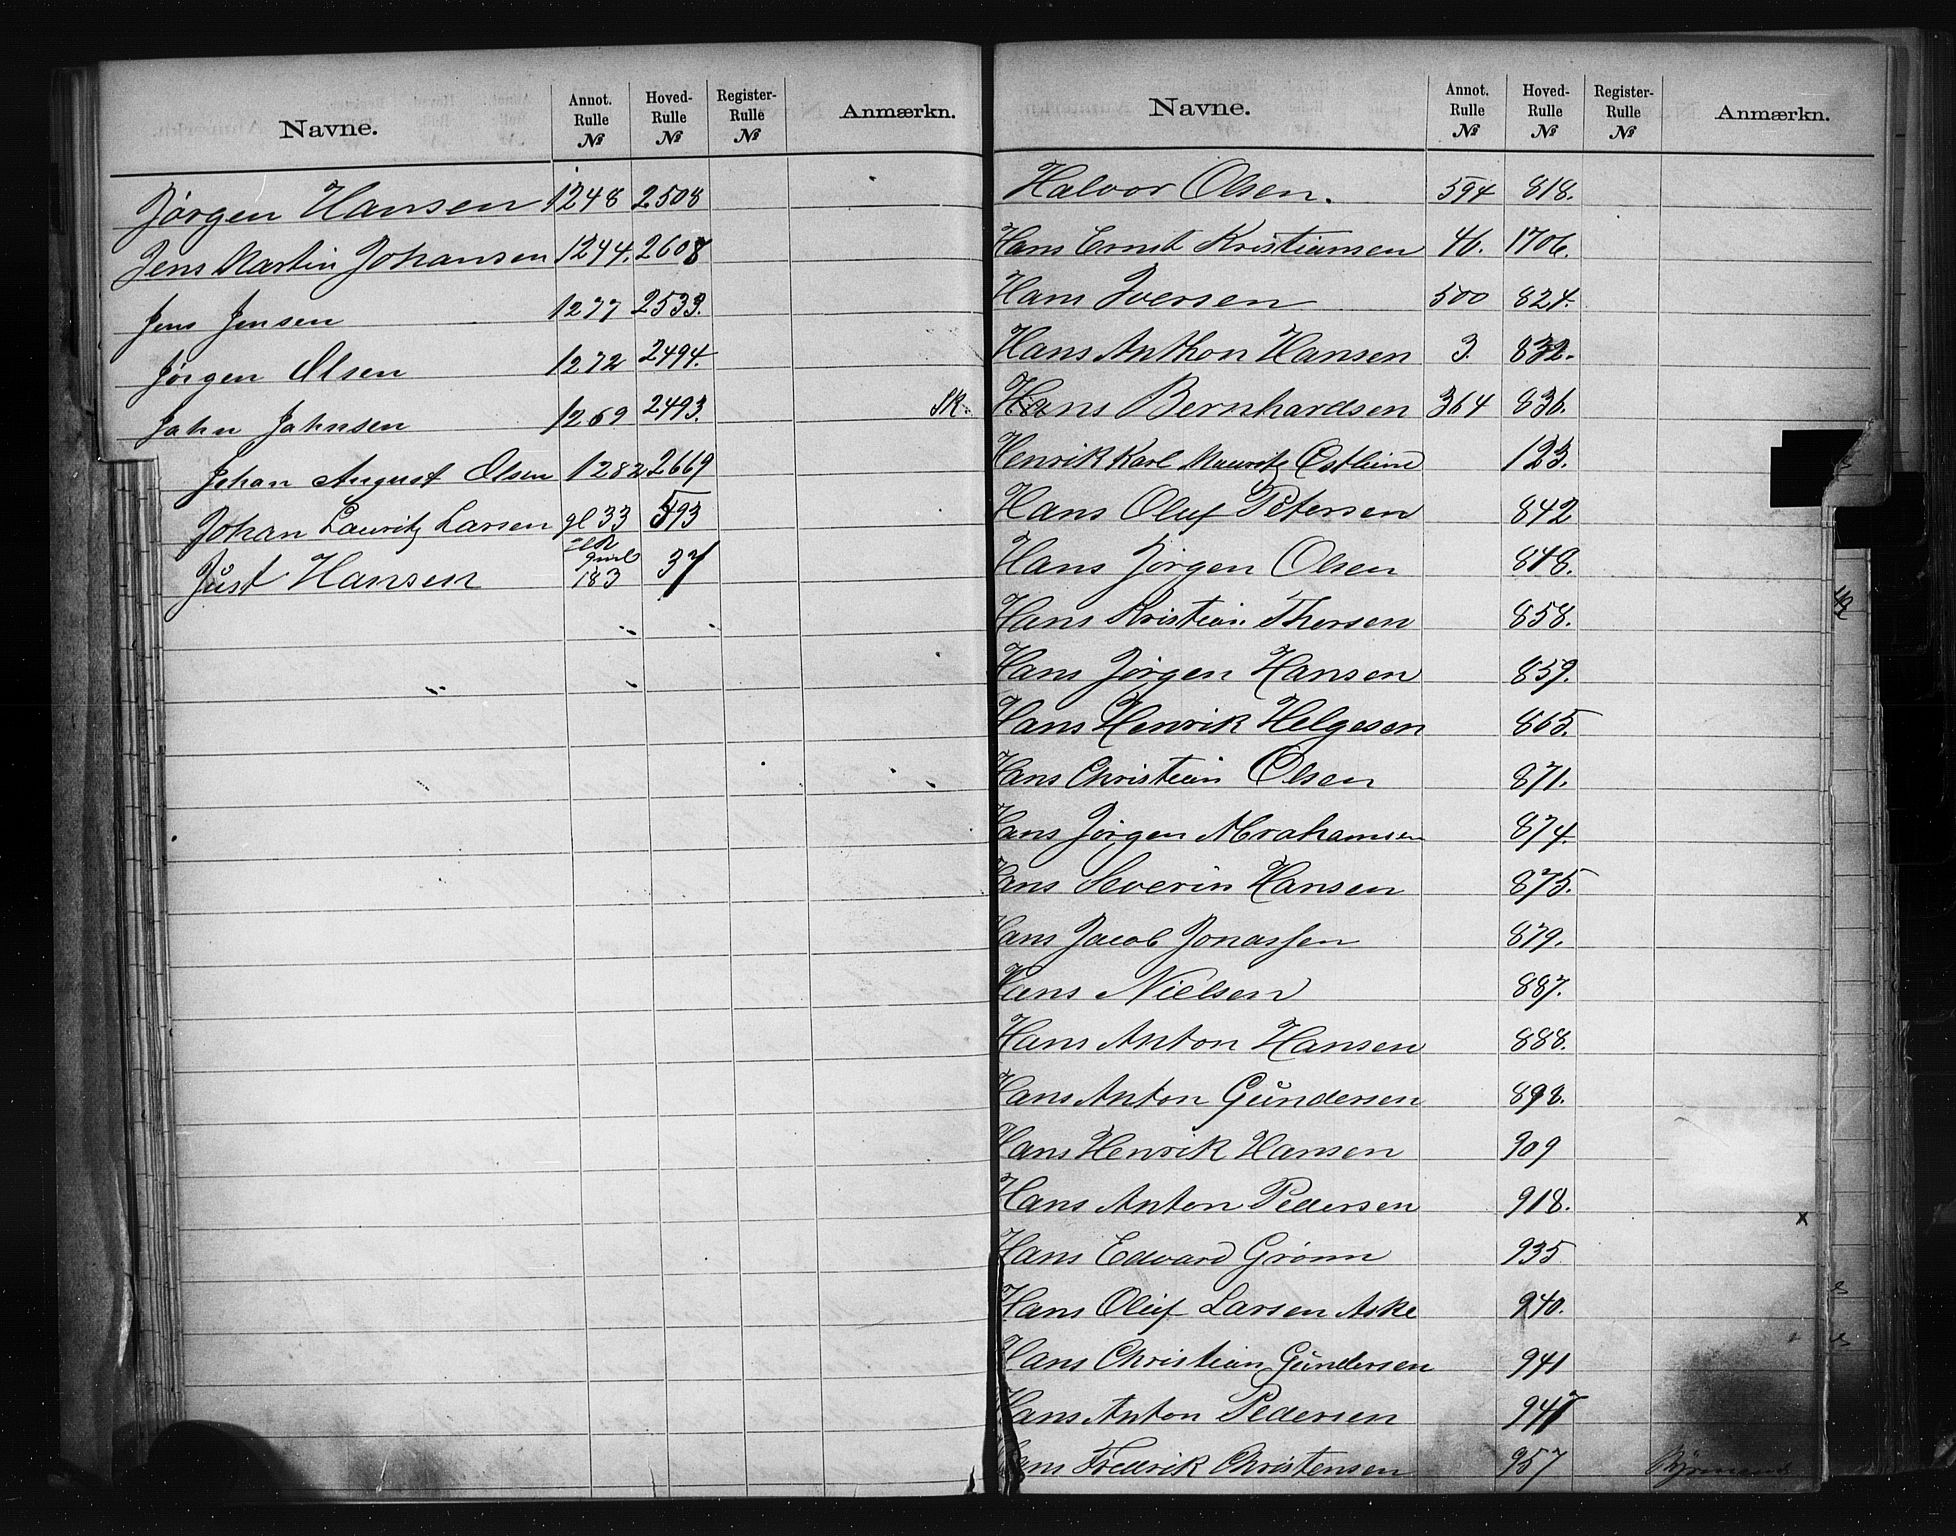 Navne. Annot. Rulle № Hoved- Rulle № Register- Rulle № Anmærkn.
Jørgen Hansen 1248 2508
Jens Martin Johansen 1244. 2608
Jens Jensen 1277 2533.
Jørgen Olsen 1272 2494.
John Johnsen 1269 2493.
Johan August Olsen 1282 2669
Johan Lauritz Larsen gl 33 593
Just Hansen 183 37
Navne. Annot. Rulle № Hoved- Rulle № Register- Rulle № Anmærkn.
Halvor Olsen. 594 818.
Hans Ernst Kristiansen 46. 1706.
Hans Iversen 500 824.
Hans Anthon Hansen 3. 832.
Sk. Hans Bernhardsen 364 836.
Henrik Karl Mauritz 123.
Hans Oluf Petersen 842
Hans Jørgen Olsen 848.
Hans Kristian Thorsen 858.
Hans Jørgen Hansen 859.
Hans Henrik Helgesen 865.
Hans Christian Olsen 871.
Hans Jørgen Abrahamsen 874.
Hans Severin Hansen 875.
Hans Jacob Jonassen 879.
Hans Nielsen 887.
Hans Anton Hansen 888.
Hans Anton Gundersen 898.
Hans Henrik Hansen 909
Hans Anton Pedersen 918.
Hans Edward Grønn 935
Hans Oluf Larsen Aske 940.
Hans Christian Gundersen 941
Hans Anton Pedersen 947
Hans Fredrik Christensen 957